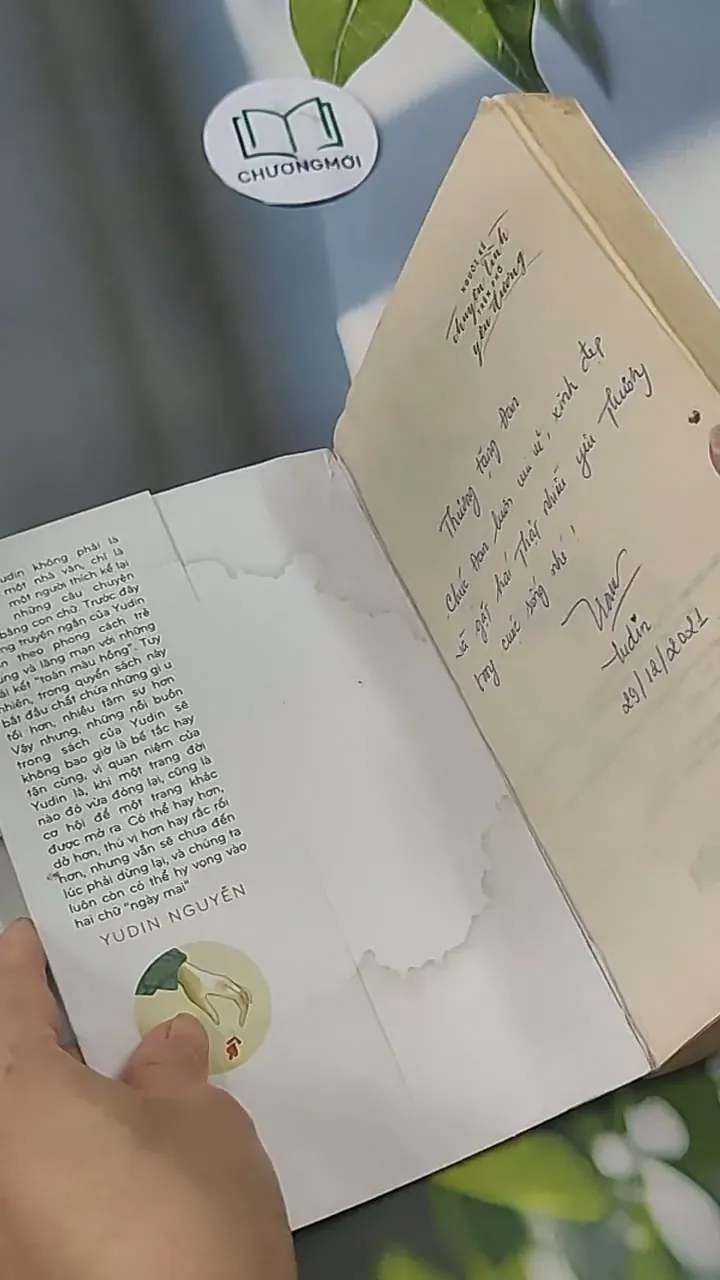 CHƯƠNGMỚI
NGƯỜI KỂ
Chuyện tình
TRÊN PHỐ
yêu đương
Thương tặng Đan
Chúc Đan luôn vui vẻ, xinh đẹp
và gặt hái thật nhiều yêu thương
trong cuộc sống nhé!
Yudin
29/12/2021
udin không phải là
một nhà văn, chỉ là
một người thích kể lại
những câu chuyện
bằng con chữ. Trước đây
truyện ngắn của Yudin
theo phong cách trẻ
và lãng mạn với những
kết "toàn màu hồng". Tuy
nhiên, trong quyển sách này
bắt đầu chất chứa những gì u
tối hơn, nhiều tâm sự hơn
Vậy nhưng, những nỗi buồn
trong sách của Yudin sẽ
không bao giờ là bế tắc hay
tận cùng, vì quan niệm của
Yudin là, khi một trang đời
nào đó vừa đóng lại, cũng là
cơ hội để một trang khác
được mở ra. Có thể hay hơn,
dở hơn, thú vị hơn hay rắc rối
hơn, nhưng vẫn sẽ chưa đến
lúc phải dừng lại, và chúng ta
luôn còn có thể hy vọng vào
hai chữ "ngày mai"
YUDIN NGUYỄN